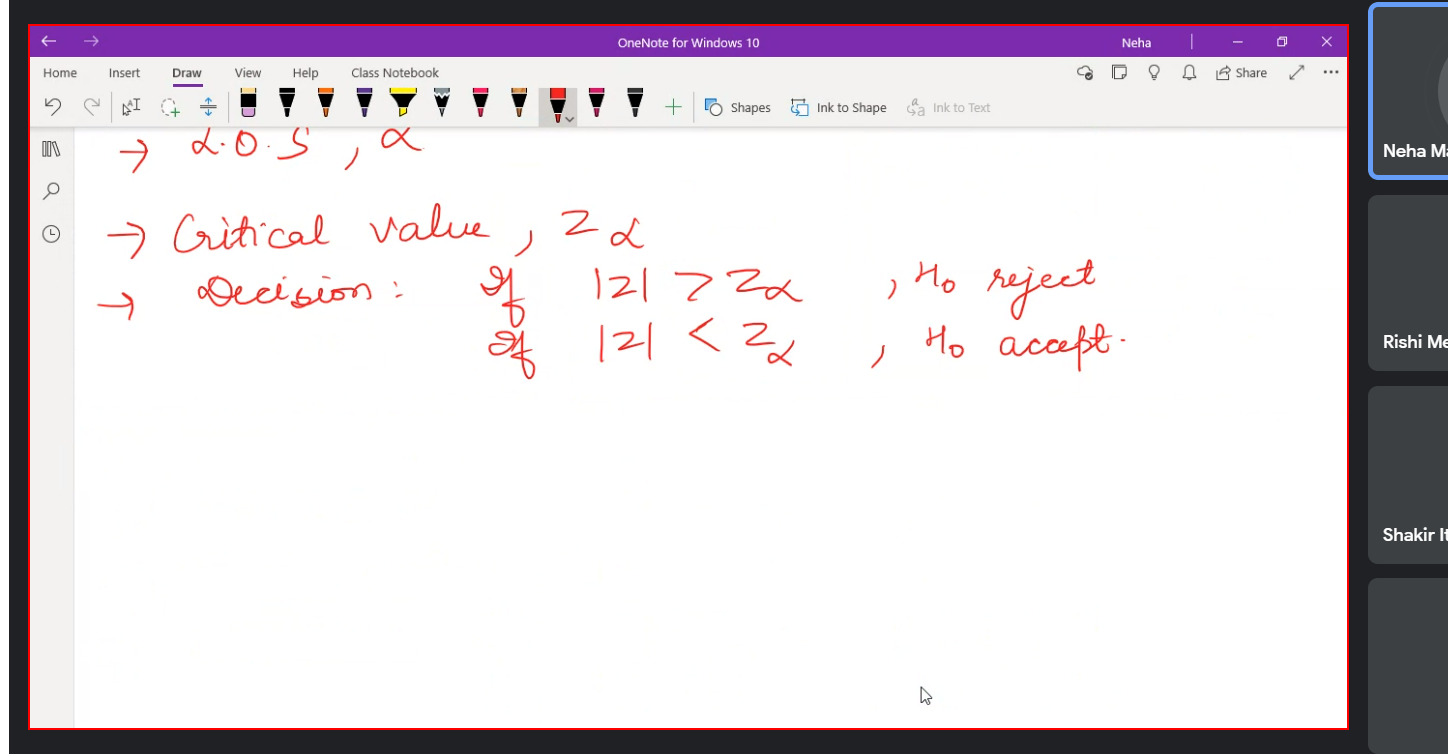 OneNote for Windows 10
Neha
Home Insert Draw View Help Class Notebook
Share
Shapes Ink to Shape Ink to Text
→ L.O.S, α
→ Critical value, Zα
→ Decision: If |Z| > Zα, H₀ reject
If |Z| < Zα, H₀ accept.
Neha Ma
Rishi Me
Shakir It